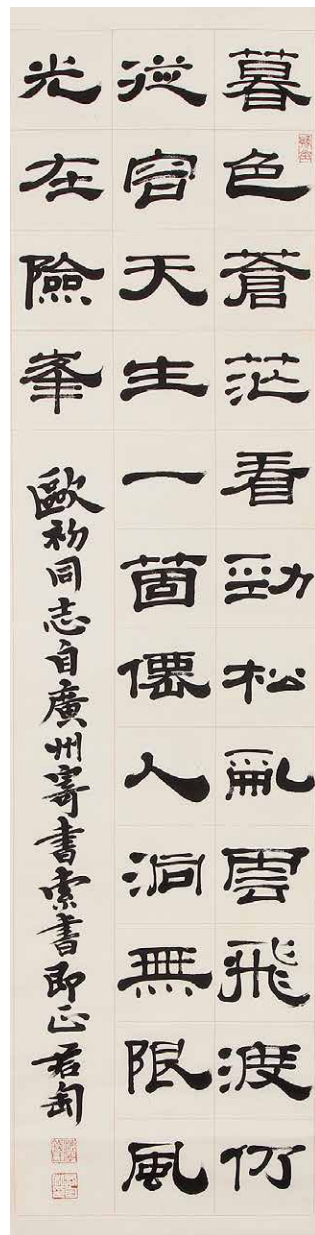 暮色蒼茫看勁松亂雲飛渡仍
從容天生一箇僊人洞無限風
光在險峯
歐初同志自廣州寄書索書即正君匋